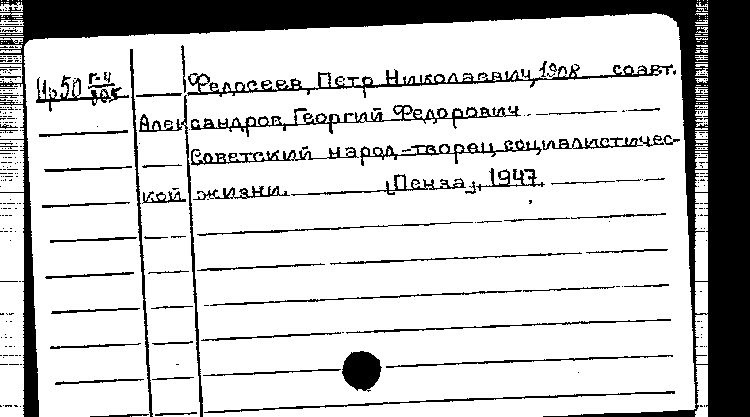 Цр50 Г-4/805 Федосеев, Петр Николаевич, 1908 соавт.
Александров, Георгий Федорович
Советский народ-творец социалистичес-
кой жизни. [Пенза], 1947.